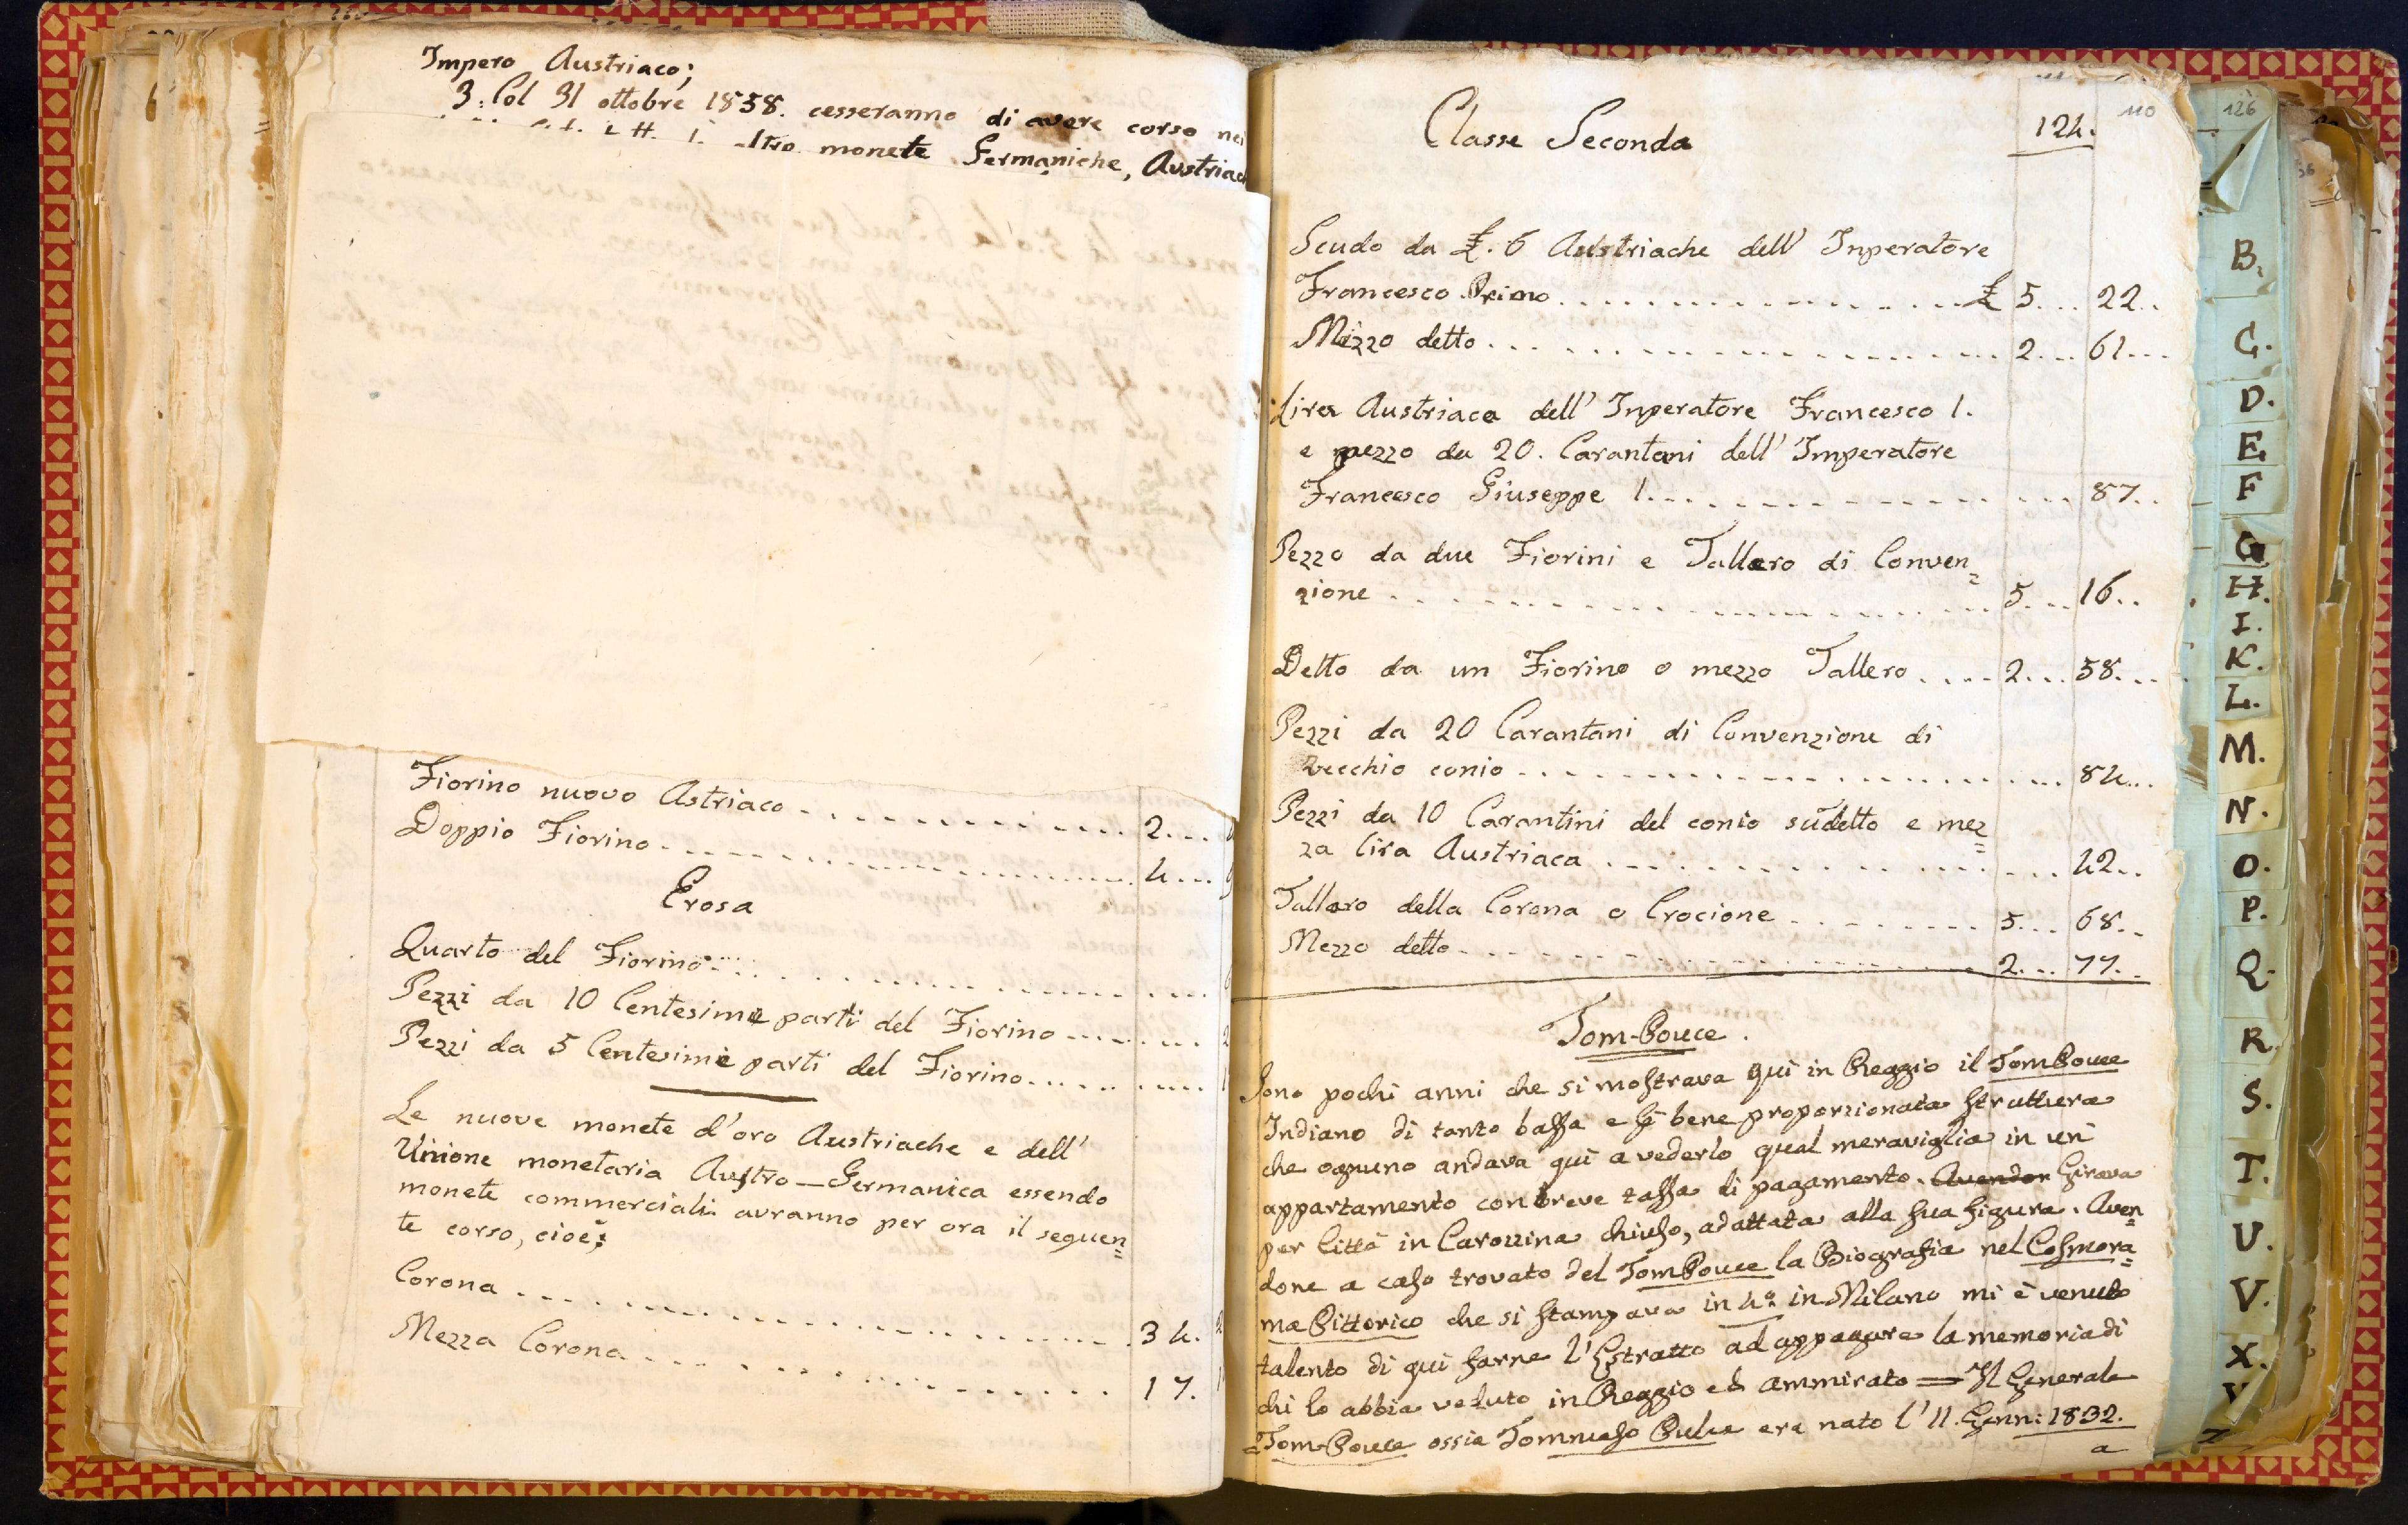 Impero Austriaco;
3: Col 31 ottobre 1858. cesseranno di avere corso nei
monete Germaniche, Austriach
Fiorino nuovo Astriaco 2
Doppio Fiorino 4
Erosa
Quarto del Fiorino
Pezzi da 10 Centesime parti del Fiorino
Pezzi da 5 Centesime parti del Fiorino
Le nuove monete d'oro Austriache e dell'
Unione monetaria Austro-Germanica essendo
monete commerciali avranno per ora il seguen=
te corso, cioè:
Corona 34.
Mezza Corona 17.
Classe Seconda 124. 110
Scudo da £. 6 Austriache dell' Inperatore
Francesco Primo £ 5 22
Mezzo detto 2 61
Lira Austriaca dell' Inperatore Francesco I.
e pezzo da 20. Carantani dell' Imperatore
Francesco Giuseppe I 87
Pezzo da due Fiorini e Tallero di Conven=
zione 5 16
Detto da un Fiorino o mezzo Tallero 2 58
Pezzi da 20 Carantani di Convenzione di
vecchio conio 84
Pezzi da 10 Carantini del conio sudetto e mez=
za lira Austriaca 42
Tallaro della Corona o Crocione 5 68
Mezzo detto 2 77
Tom-Pouce.
Sono pochi anni che si mostrava quì in Reggio il Tom Pouce
Indiano di tanto bassa e sì bene proporzionata struttura
che ognuno andava quì a vederlo qual meraviglia in un
appartamento con breve tassa di pagamento. Avendon Girava
per Città in Carozzina chiuso, adattata alla sua figura. Aven=
done a caso trovato del Tom Pouce la Biografia nel Cosmora=
ma Pittorico che si stampava in 4º in Milano mi è venuto
talento di quì farne l'Estratto ad appagare la memoria di
chi lo abbia veduto in Reggio ed ammirato = Il Generale
Tom-Pouce ossia Tommaso Pulce era nato l'11. Genn: 1832.
a
126
B.
C.
D.
E
F
G
H.
I.
K.
L.
M.
N.
O.
P.
Q.
R
S.
T.
U.
V.
X.
Y
Z